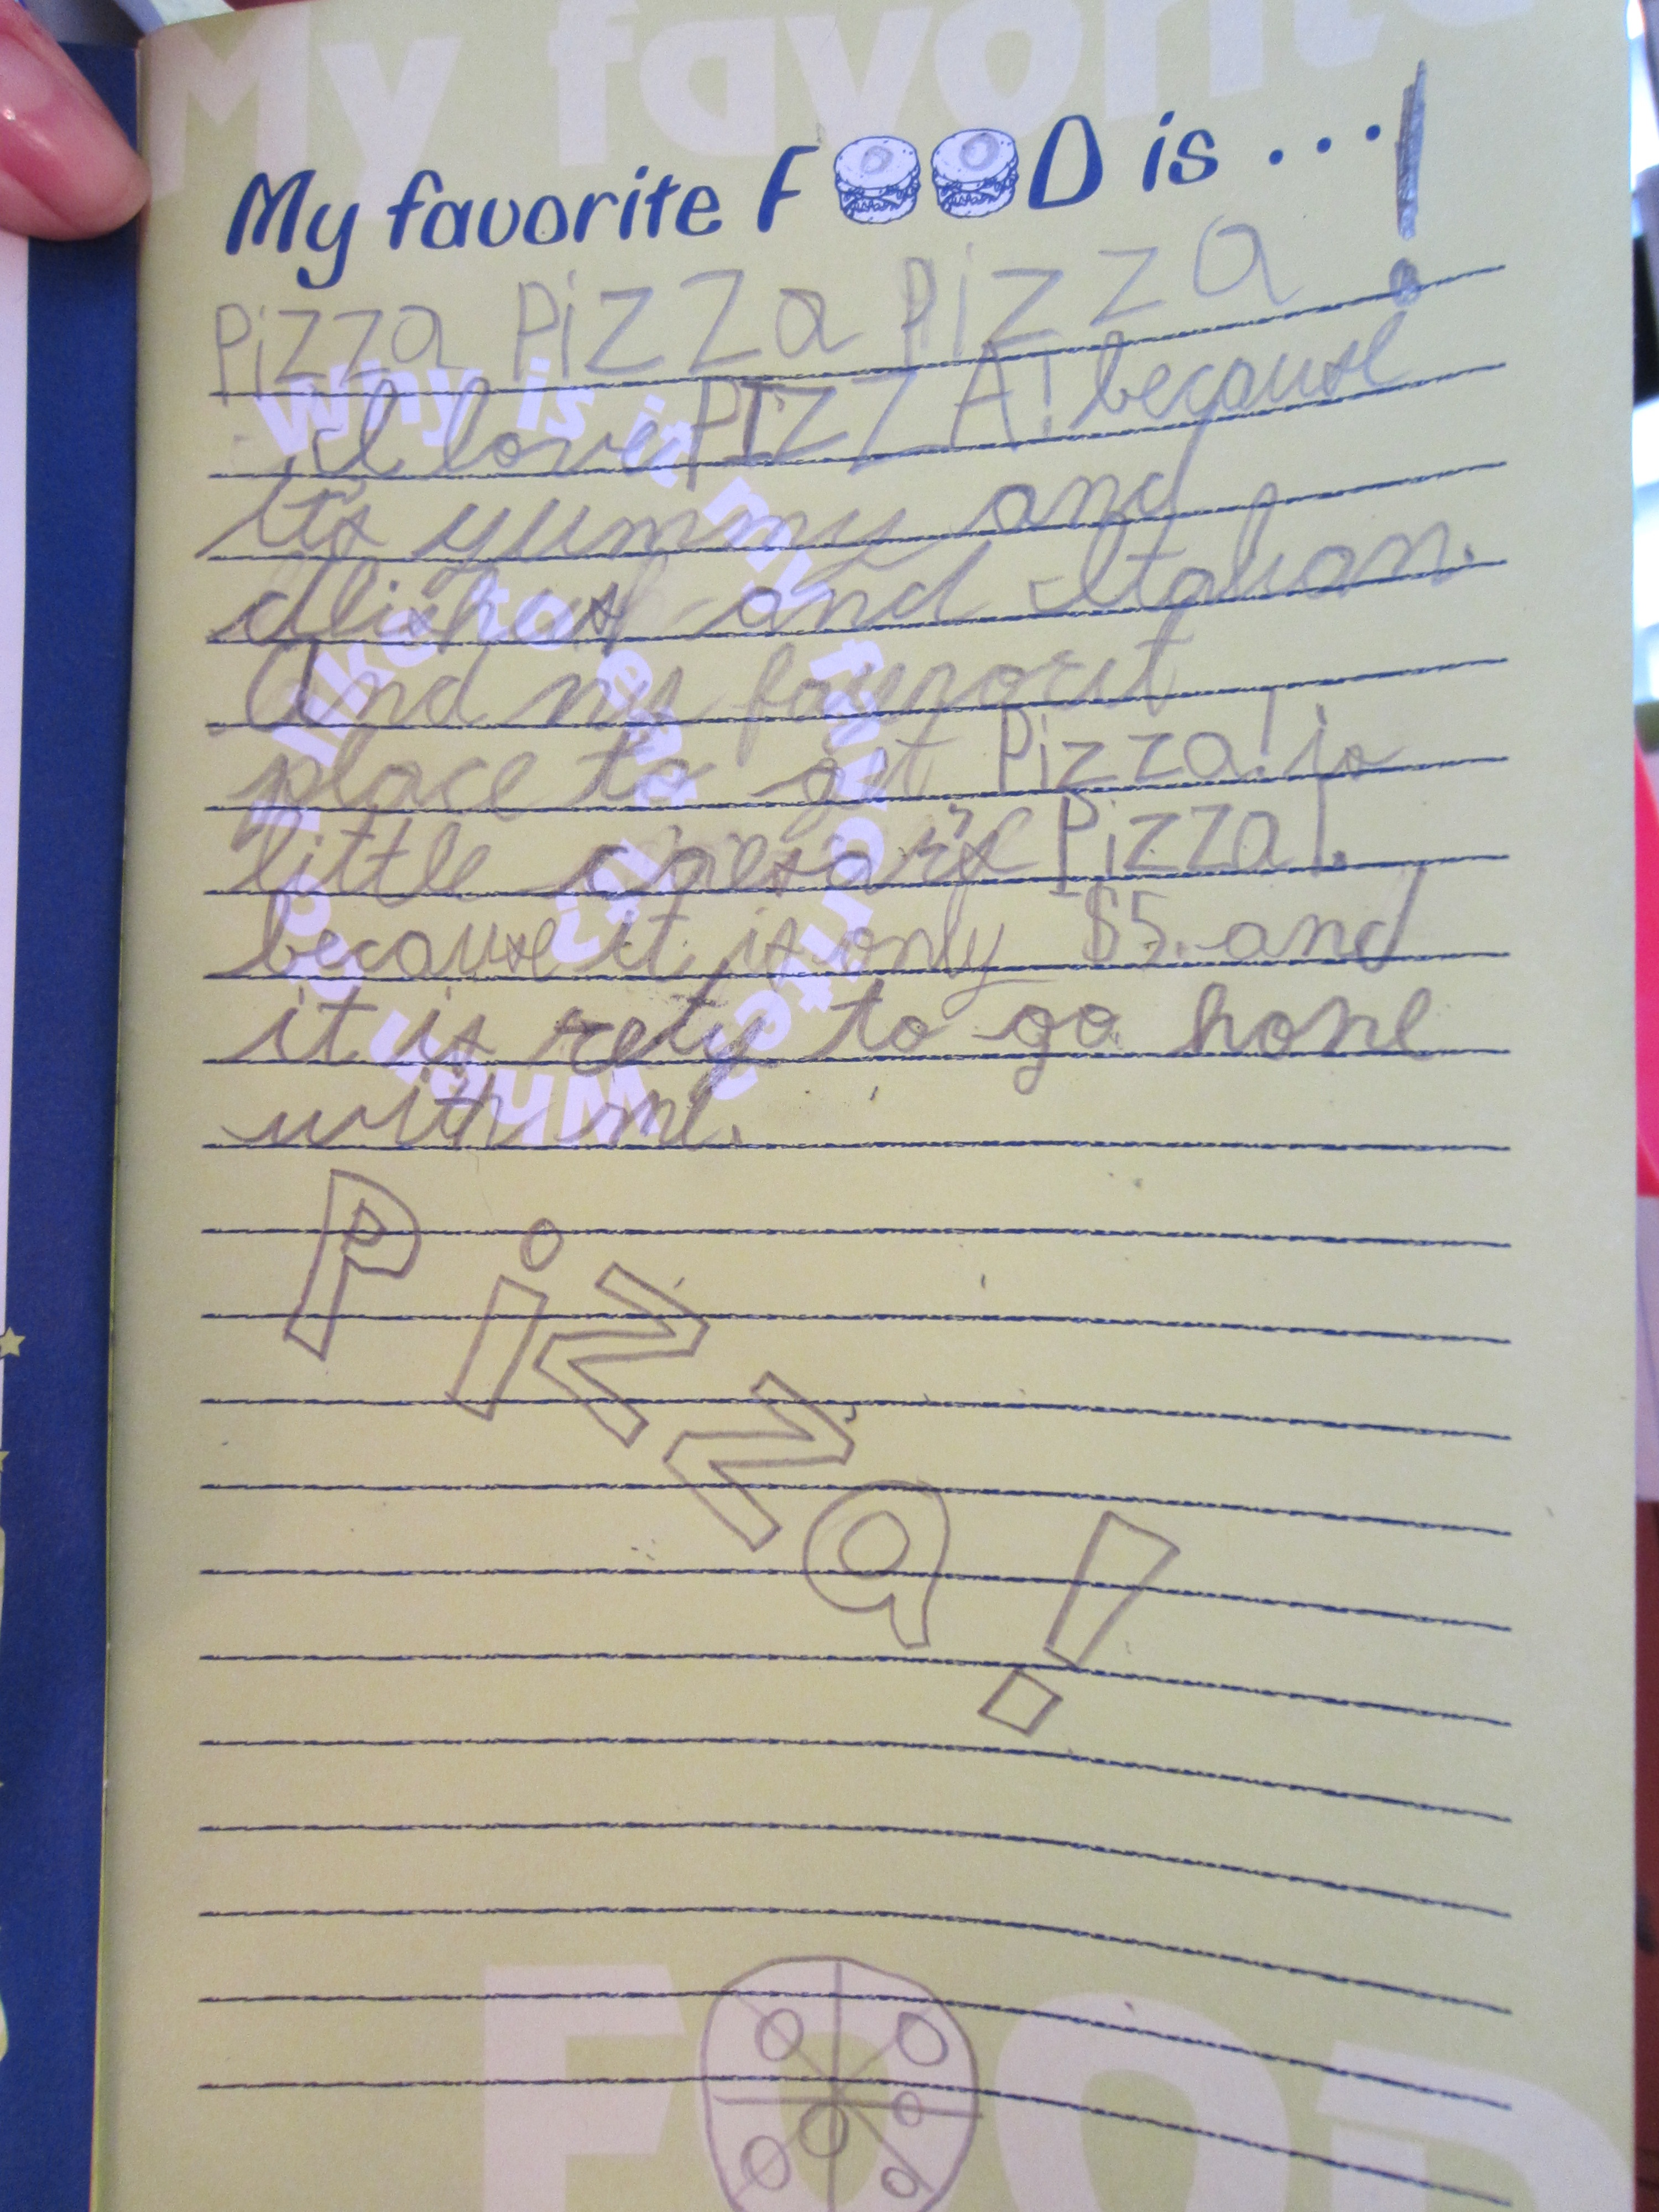 My favorite
My favorite FOOD is ...!
Pizza Pizza Pizza
I love PIZZA! because
It's yummy and
dlishous and Italian.
And my fayvorit
place to get Pizza! is
little ceasar's Pizza!
because it is only $5. and
it is rety to go home
with me.
Pizza!
Why is it my favorite?
FOOD